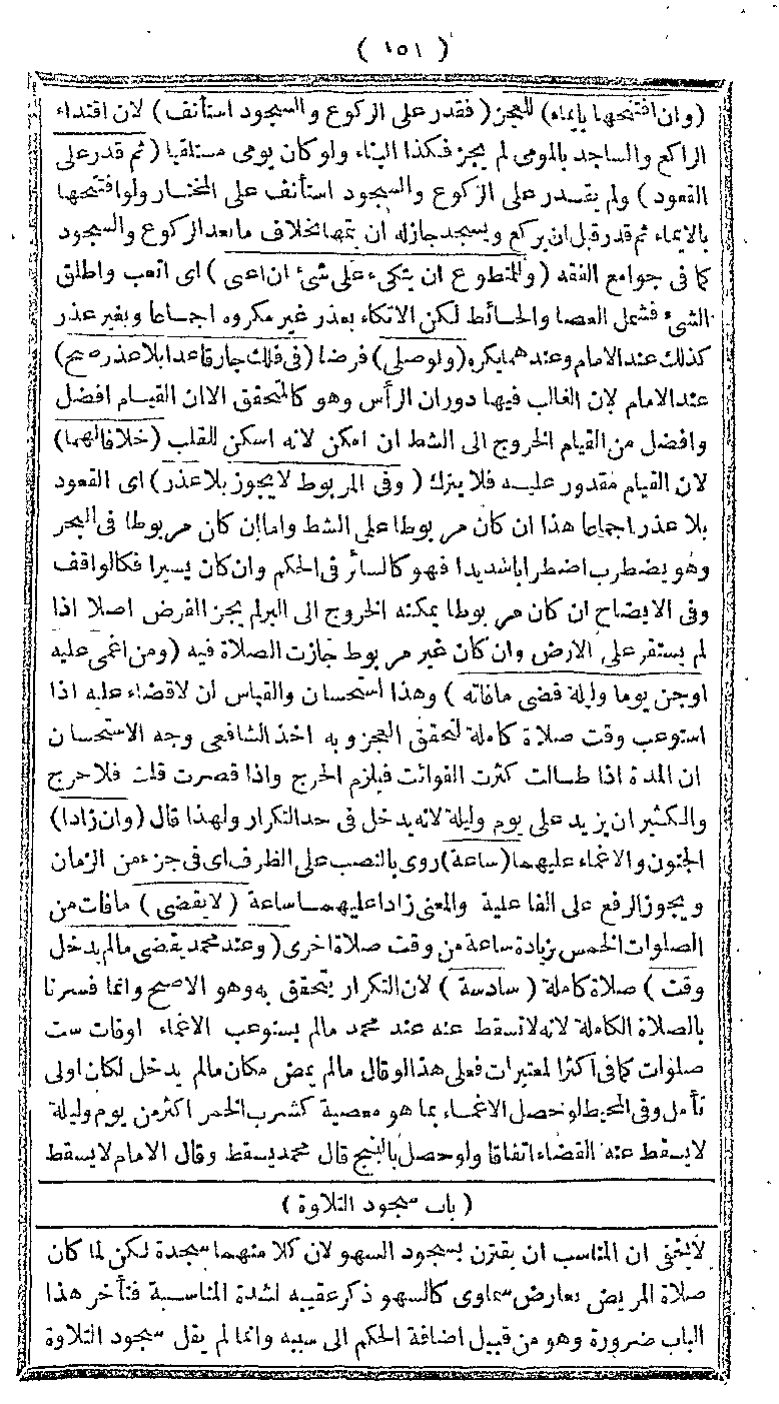 ( ١٥١ )
(وان افتتحها بايماء) للعجز (فقدر على الركوع والسجود استأنف) لان اقتداء
الراكع والساجد بالمومى لم يجز فكذا البناء ولو كان يومى مستلقيا (ثم قدر على
القعود) ولم يقدر على الركوع والسجود استأنف على المختار ولو افتتحها
بالايماء ثم قدر قبل ان يركع ويسجد جازله ان يتمها بخلاف ما بعد الركوع والسجود
كما فى جوامع الفقه (وللمتطوع ان يتكىء على شئ ان اعيى) اى اتعب واطلق
الشىء فشمل العصا والحائط لكن الاتكاء بعذر غير مكروه اجماعا وبغير عذر
كذلك عند الامام وعندهما يكره (ولو صلى) فرضا (فى فلك جار قاعدا بلا عذر صح)
عند الامام لان الغالب فيها دوران الرأس وهو كالمتحقق الا ان القيام افضل
وافضل من القيام الخروج الى الشط ان امكن لانه اسكن للقلب (خلافا لهما)
لان القيام مقدور عليه فلا يترك (وفى المربوط لا يجوز بلا عذر) اى القعود
بلا عذر اجماعا هذا ان كان مربوطا على الشط واما ان كان مربوطا فى البحر
وهو يضطرب اضطرابا شديدا فهو كالسائر فى الحكم وان كان يسيرا فكالواقف
وفى الايضاح ان كان مربوطا يمكنه الخروج الى البر لم يجز الفرض اصلا اذا
لم يستقر على الارض وان كان غير مربوط جازت الصلاة فيه (ومن اغمى عليه
او جن يوما وليلة قضى مافاته) وهذا استحسان والقياس ان لا قضاء عليه اذا
استوعب وقت صلاة كاملة لتحقق العجز وبه اخذ الشافعى وجه الاستحسان
ان المدة اذا طالت كثرت الفوائت فيلزم الحرج واذا قصرت قلت فلا حرج
والكثير ان يزيد على يوم وليلة لانه يدخل فى حد التكرار ولهذا قال (وان زادا)
الجنون والاغماء عليهما (ساعة) روى بالنصب على الظرف اى فى جزء من الزمان
ويجوز الرفع على الفاعلية والمعنى زادا عليهما ساعة (لا يقضى) مافات من
الصلوات الخمس بزيادة ساعة من وقت صلاة اخرى (وعند محمد يقضى مالم يدخل
وقت) صلاة كاملة (سادسة) لان التكرار يتحقق به وهو الاصح وانما فسرنا
بالصلاة الكاملة لانه لا تسقط عنه عند محمد مالم يستوعب الاغماء اوقات ست
صلوات كما فى اكثر المعتبرات فعلى هذا لو قال مالم يمض مكان مالم يدخل لكان اولى
تأمل وفى المحيط لو حصل الاغماء بما هو معصية كشرب الخمر اكثر من يوم وليلة
لا يسقط عنه القضاء اتفاقا ولو حصل بالبنج قال محمد يسقط وقال الامام لا يسقط
(باب سجود التلاوة)
لا يخفى ان المناسب ان يقترن بسجود السهو لان كلا منهما سجدة لكن لما كان
صلاة المريض بعارض سماوى كالسهو ذكر عقيبه لشدة المناسبة فتأخر هذا
الباب ضرورة وهو من قبيل اضافة الحكم الى سببه وانما لم يقل سجود التلاوة